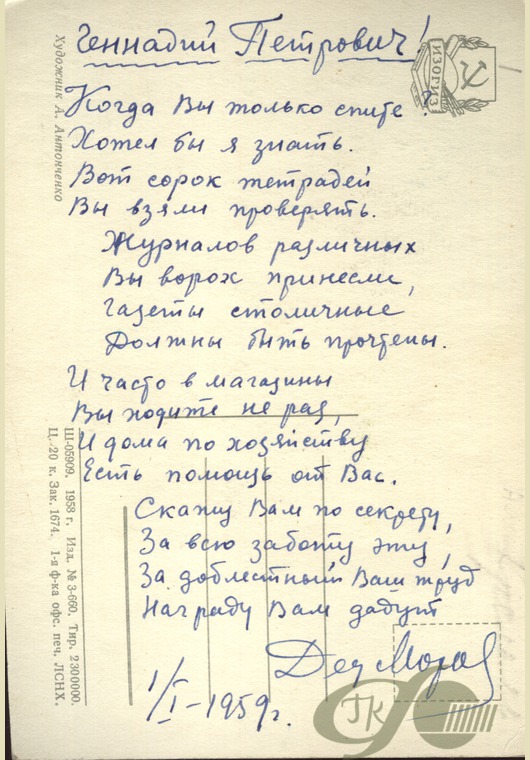 Геннадий Петрович!
Когда Вы только спите?
Хотел бы я знать.
Вот сорок тетрадей
Вы взяли проверять.
Журналов различных
Вы ворох принесли,
Газеты столичные
Должны быть прочтены.
И часто в магазины
Вы ходите не раз,
И дома по хозяйству
Есть помощь от Вас.
Скажу Вам по секрету,
За всю заботу эту,
За доблестный Ваш труд
Награду Вам дадут
Дед Мороз
1/I-1959г.
Художник А. Антонченко
ИЗОГИЗ
Ш-05909. 1958 г. Изд. № 3-660. Тир. 2300000.
Ц. 20 к. Зак. 1674. 1-я ф-ка офс. печ. ЛСНХ.
ГК